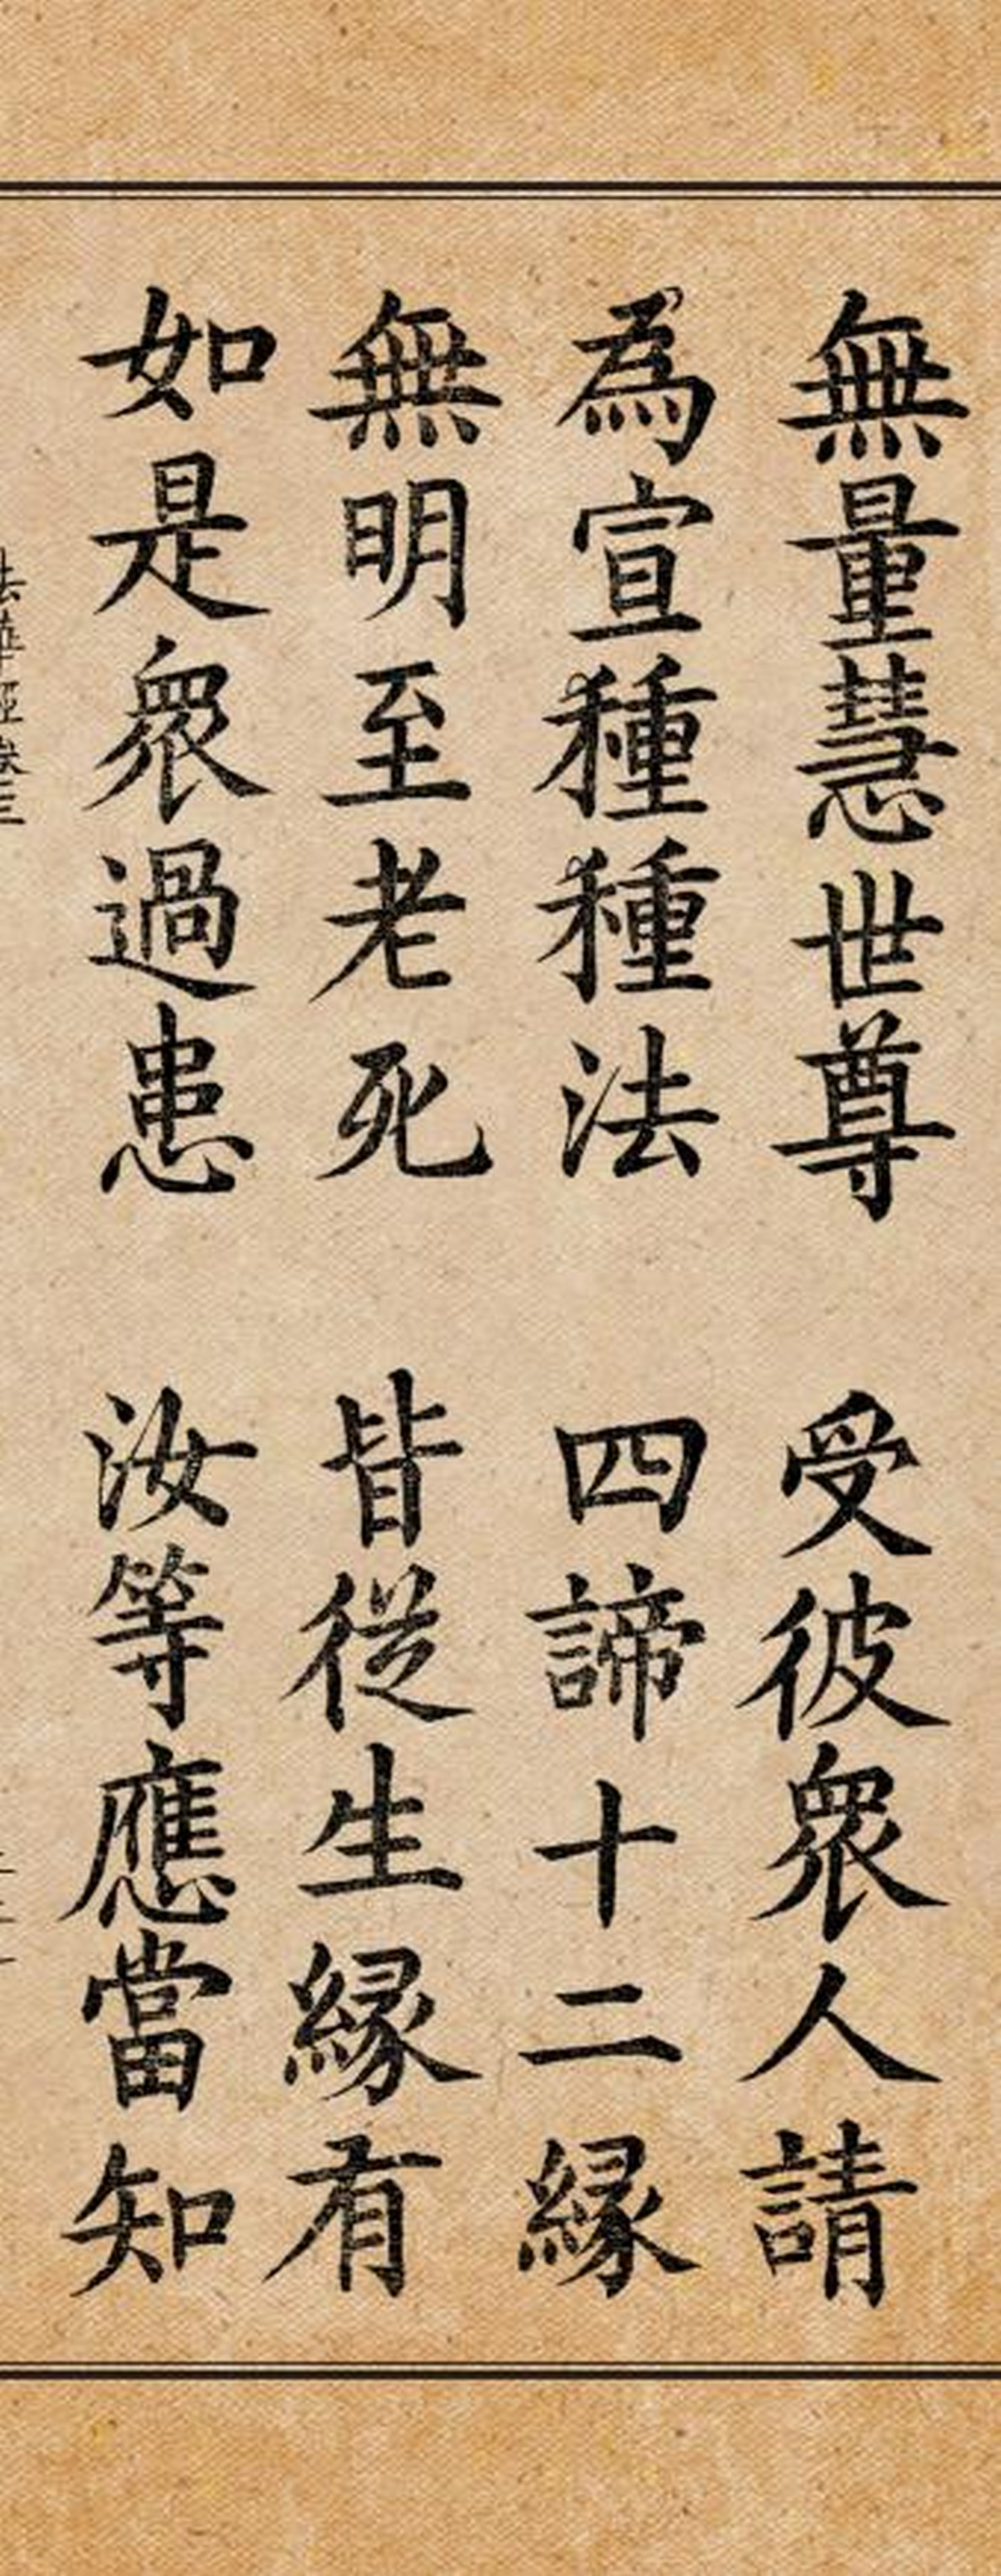 無量慧世尊 受彼衆人請
為宣種種法 四諦十二緣
無明至老死 皆從生緣有
如是衆過患 汝等應當知
法華經卷三